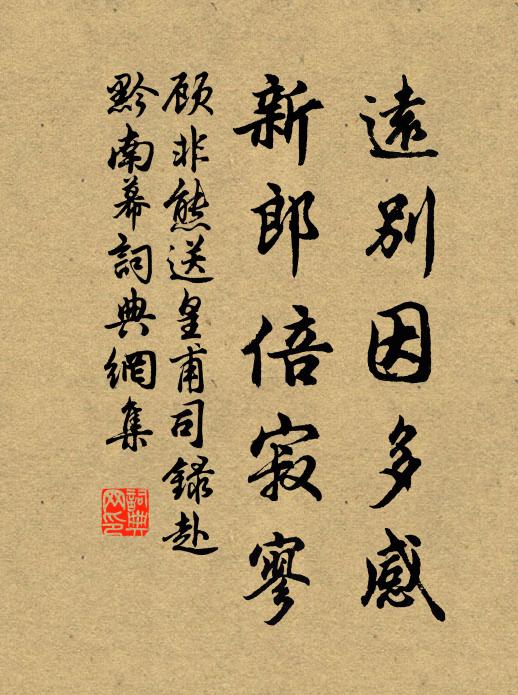 遠別因多感
新郎倍寂寥
顧非熊送皇甫司錄赴
黔南幕詞典網集
詞典
网印